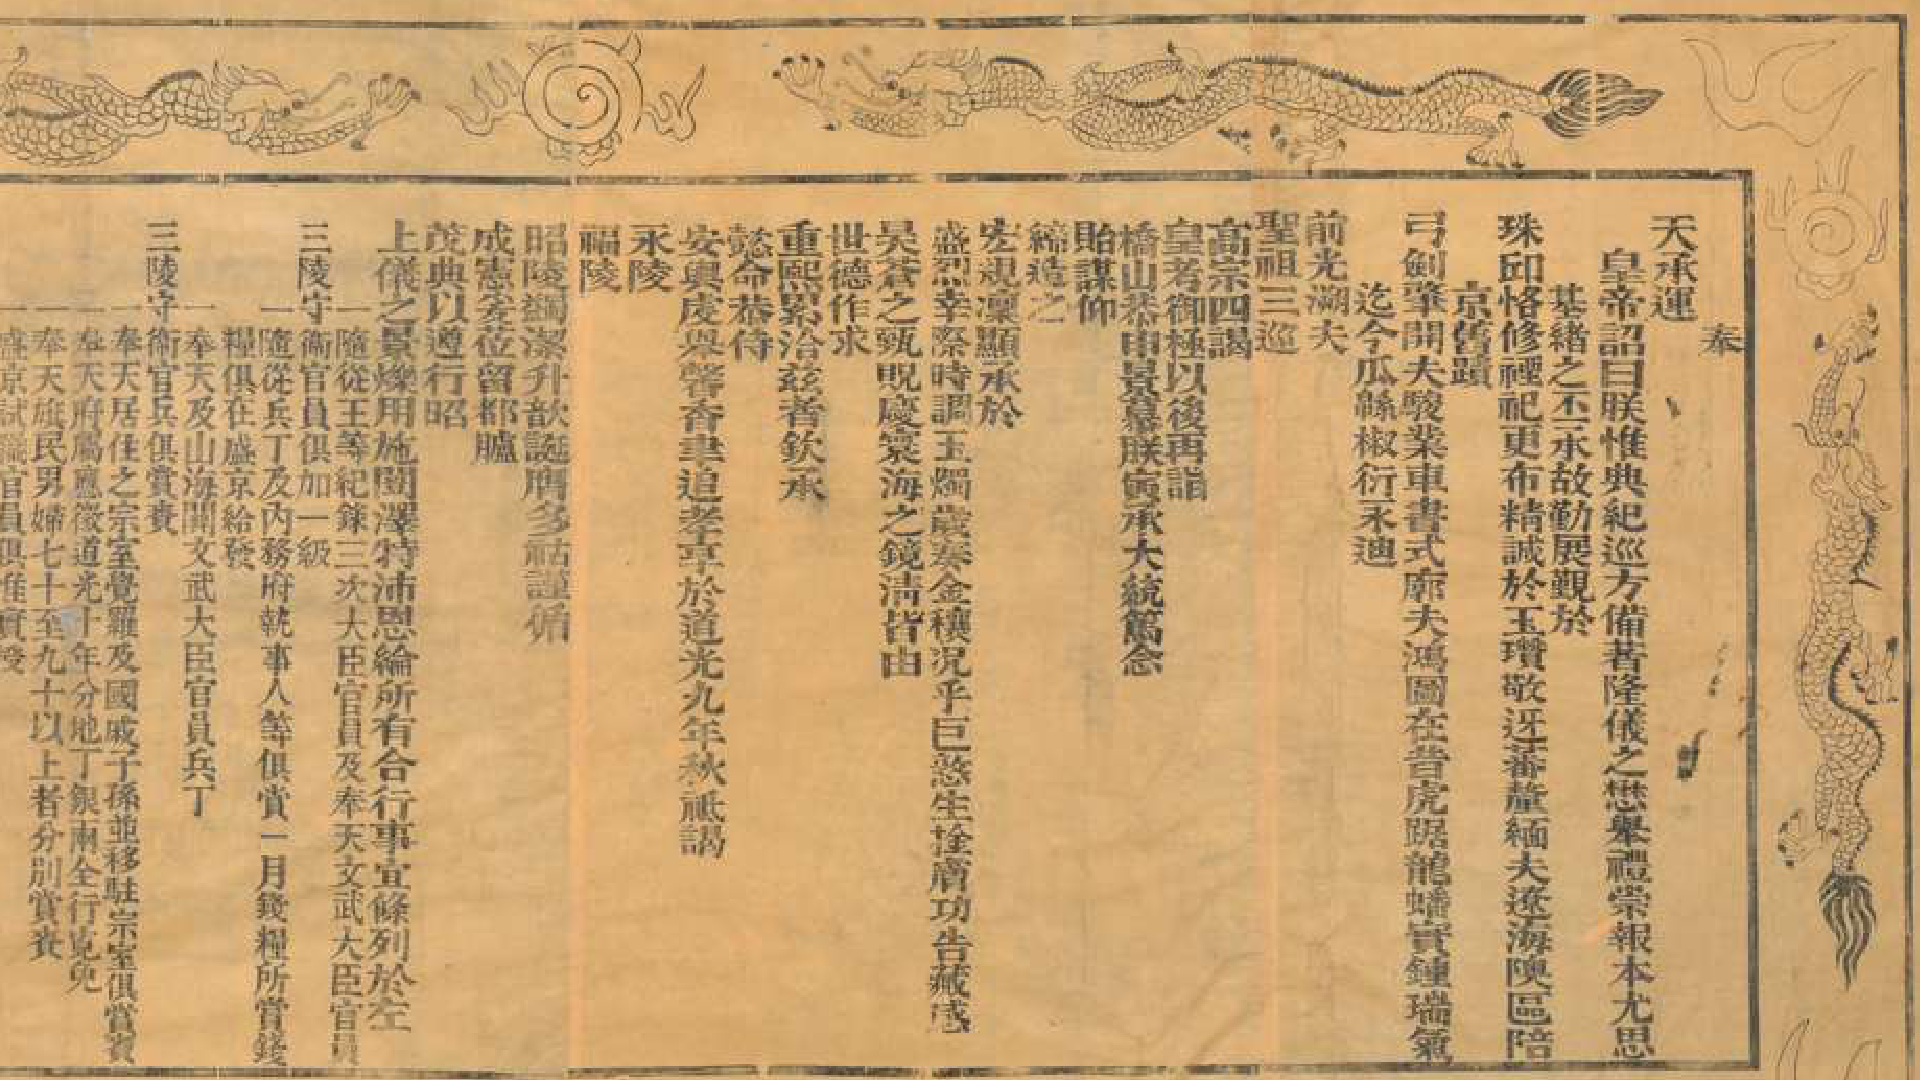 奉
天承運
皇帝詔曰朕惟典紀巡方備著隆儀之懋舉禮崇報本尤思
基緒之丕承故勤展覲於
珠邱恪修禋祀更布精誠於玉瓚敬迓蕃釐緬夫遼海隩區陪
京舊蹟
弓劍肇開夫駿業車書式廓夫鴻圖在昔虎踞龍蟠寶鍾瑞氣
迄今瓜緜椒衍永迪
前光溯夫
聖祖三巡
高宗四謁
皇考御極以後再詣
橋山恭申景慕朕寅承大統篤念
貽謀仰
締造之
宏規凜顯承於
盛烈幸際時調玉燭歲奏金穰況乎巨憝生擒膚功告蕆感
昊蒼之甄貺慶寰海之鏡清皆由
世德作求
重熙累洽茲者欽承
懿命恭侍
安輿虔與馨香聿追孝享於道光九年秋祗謁
永陵
福陵
昭陵蠲潔升歆誕膺多祜謹循
成憲妥蒞留都臚
茂典以遵行昭
上儀之景爍用施闓澤特沛恩綸所有合行事宜條列於左
一隨從王等紀錄三次大臣官員及奉天文武大臣官員
三陵守衞官員俱加一級
一隨從兵丁及內務府執事人等俱賞一月錢糧所賞錢
糧俱在盛京給發
一奉天及山海關文武大臣官員兵丁
三陵守衞官兵俱賞賚
一奉天居住之宗室覺羅及國戚子孫並移駐宗室俱賞賚
一奉天府屬應徵道光十年分地丁銀兩全行寬免
一奉天旗民男婦七十至九十以上者分別賞賚
一盛京試職官員俱准實授